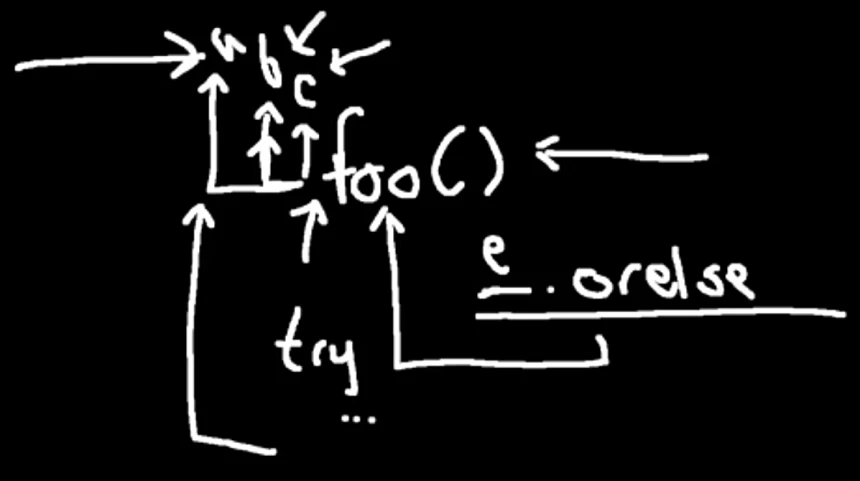 a
b
c
foo()
e.orelse
try
...